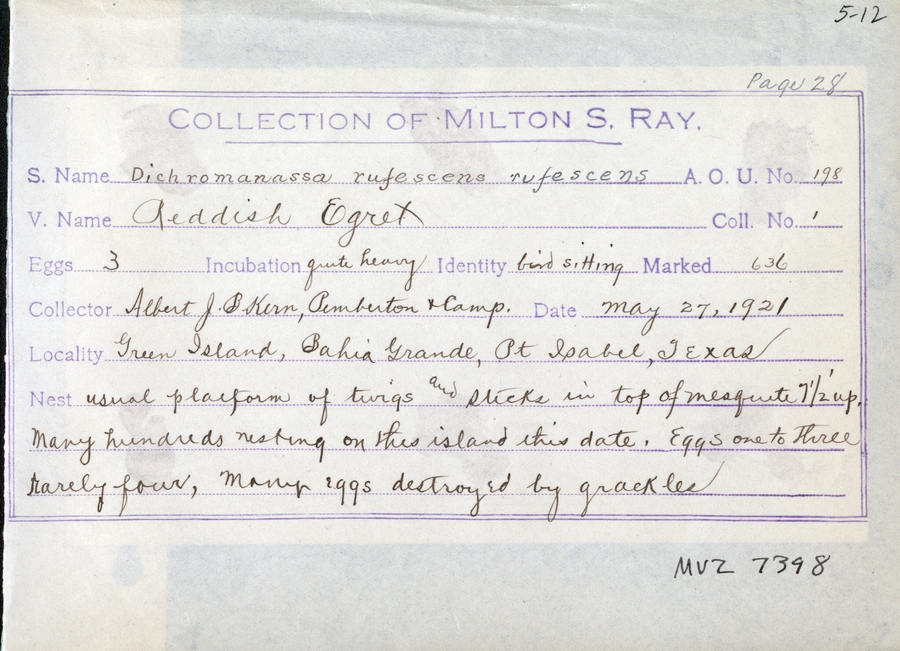 5-12
Page 28
COLLECTION OF MILTON S. RAY.
S. Name Dichromanassa rufescens rufescens A. O. U. No. 198
V. Name Reddish Egret Coll. No. 1
Eggs 3 Incubation quite heavy Identity bird sitting Marked 636
Collector Albert J. B Kern, Pemberton & Camp. Date May 27, 1921
Locality Green Island, Bahia Grande, Pt Isabel, Texas
Nest usual platform of twigs and sticks in top of mesquite 7 1/2' up.
Many hundreds nesting on this island this date. Eggs one to three
rarely four, Many eggs destroyed by grackles
MVZ 7398